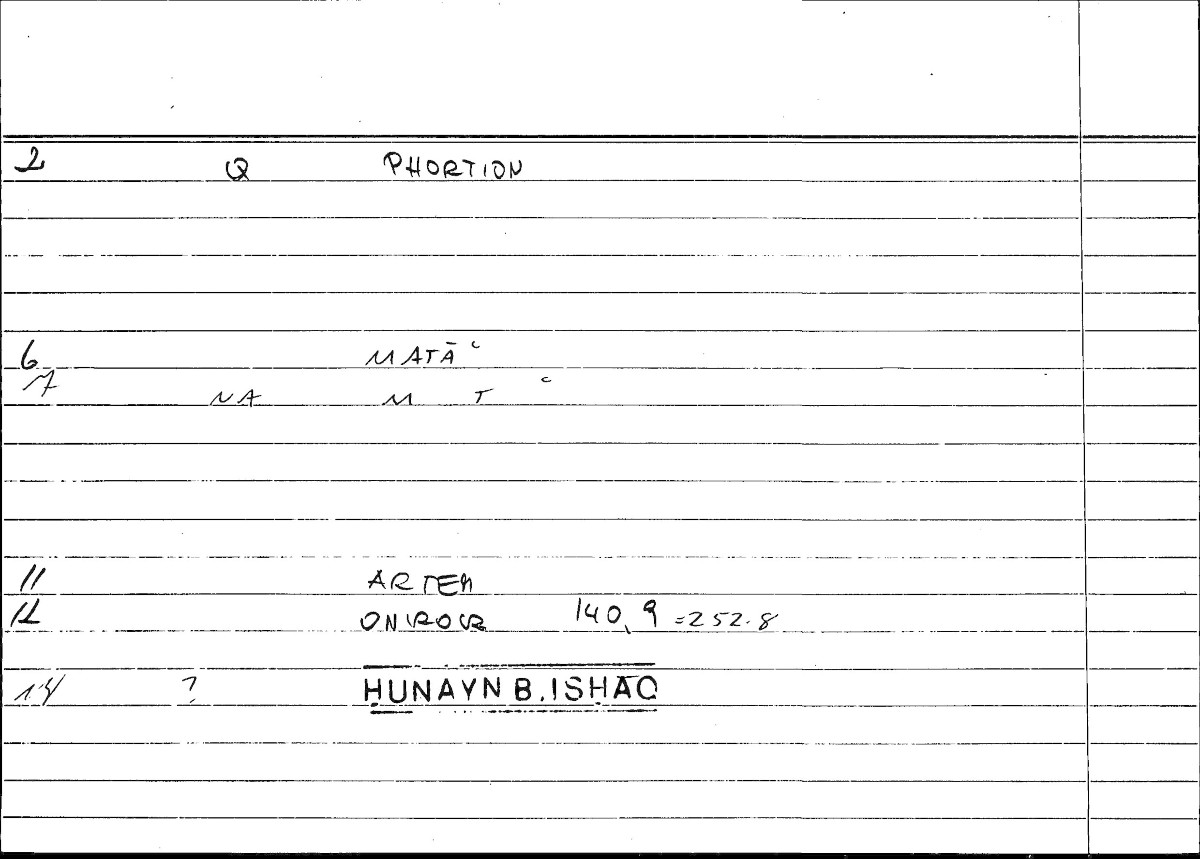 2 Q PHORTION
6 MATĀʿ
7 NA M T ʿ
11 ARTEM
12 ONIROCR 140,9 =252.8
14 ? ḤUNAYN B. ISḤĀQ